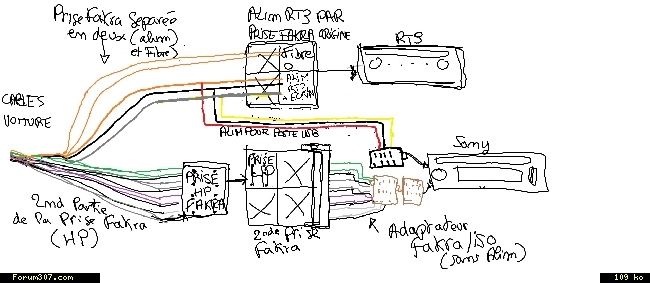 Prise Fakra séparée
en deux (alim)
et Fibre)
Alim RT3 PAR
PRISE FAKRA ORIGINE
RT3
Fibre
O
ALIM
RT3
ECRAN
CABLES
VOITURE
ALIM POUR POSTE USB
Sony
PRISE
HP
FAKRA
PRISE
HP
2nd Partie
de la Prise Fakra
(HP)
2nde Prise
Fakra
Adaptateur
Fakra/ISO
(sans Alim)
Forum307.com
109 ko